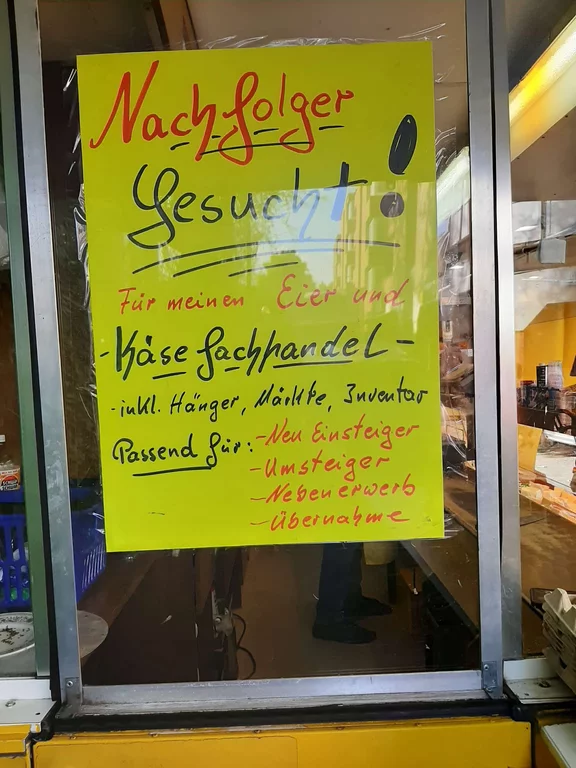 Nachfolger
Gesucht!
Für meinen Eier und
- Käsefachhandel -
- inkl. Hänger, Märkte, Inventar
Passend für: - Neu Einsteiger
- Umsteiger
- Nebenerwerb
- Übernahme